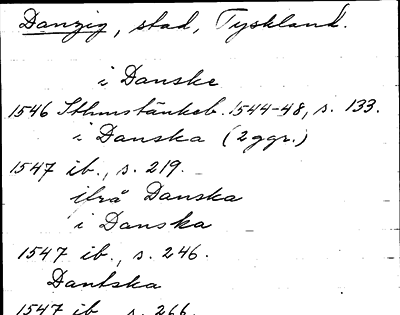 Danzig, stad, Tyskland.
i Danske
1546 Sthmstänkeb. 1544-48, s. 133.
i Danska (2 ggr.)
1547 ib., s. 219.
ifrå Danska
i Danska
1547 ib., s. 246.
Dantska
1547 ib., s. 266.